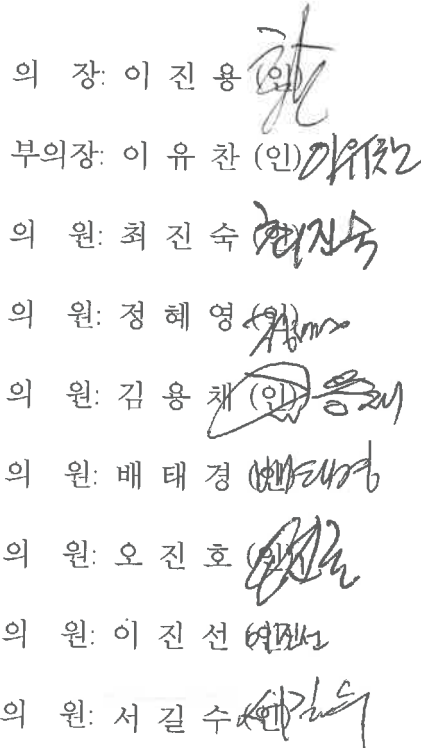 의 장: 이 진 용 (인)
부의장: 이 유 찬 (인) 이유찬
의 원: 최 진 숙 (인) 최진숙
의 원: 정 혜 영 (인)
의 원: 김 용 채 (인) 용채
의 원: 배 태 경 (인) 배태경
의 원: 오 진 호 (인)
의 원: 이 진 선 (인) 이진선
의 원: 서 길 수 (인) 길수